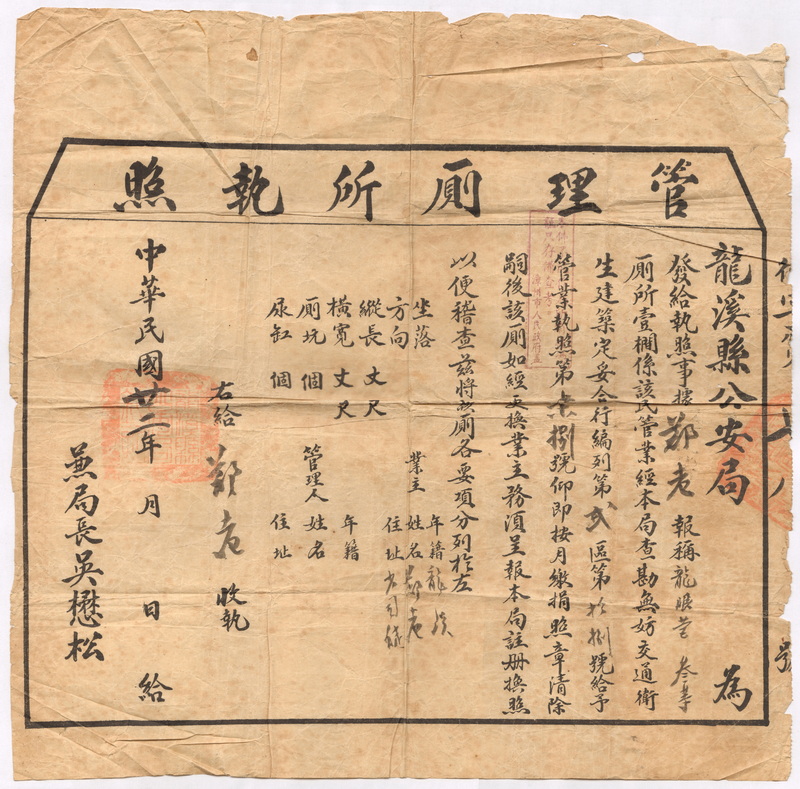 管理厕所執照
龍溪縣公安局 為
發給執照事據鄭老報稱龍眼營
厠所壹櫊係該民管業經本局查勘無妨交通衛
生建築定妥合行編列第弍區第拾捌號給予
管業執照第捌號仰即按月繳捐照章清除
嗣後該厠如經更換業主務須呈報本局註册換照
以便稽查茲將該厠各要項分列於左
坐落
方向
縱長 丈 尺
橫寬 丈 尺
厠坑 個
尿缸 個
業主
年籍龍溪
姓名鄭老
住址
管理人
年籍
姓名
住址
右給 鄭老 收執
中華民國廿二年 月 日給
兼局長吳懋松
號